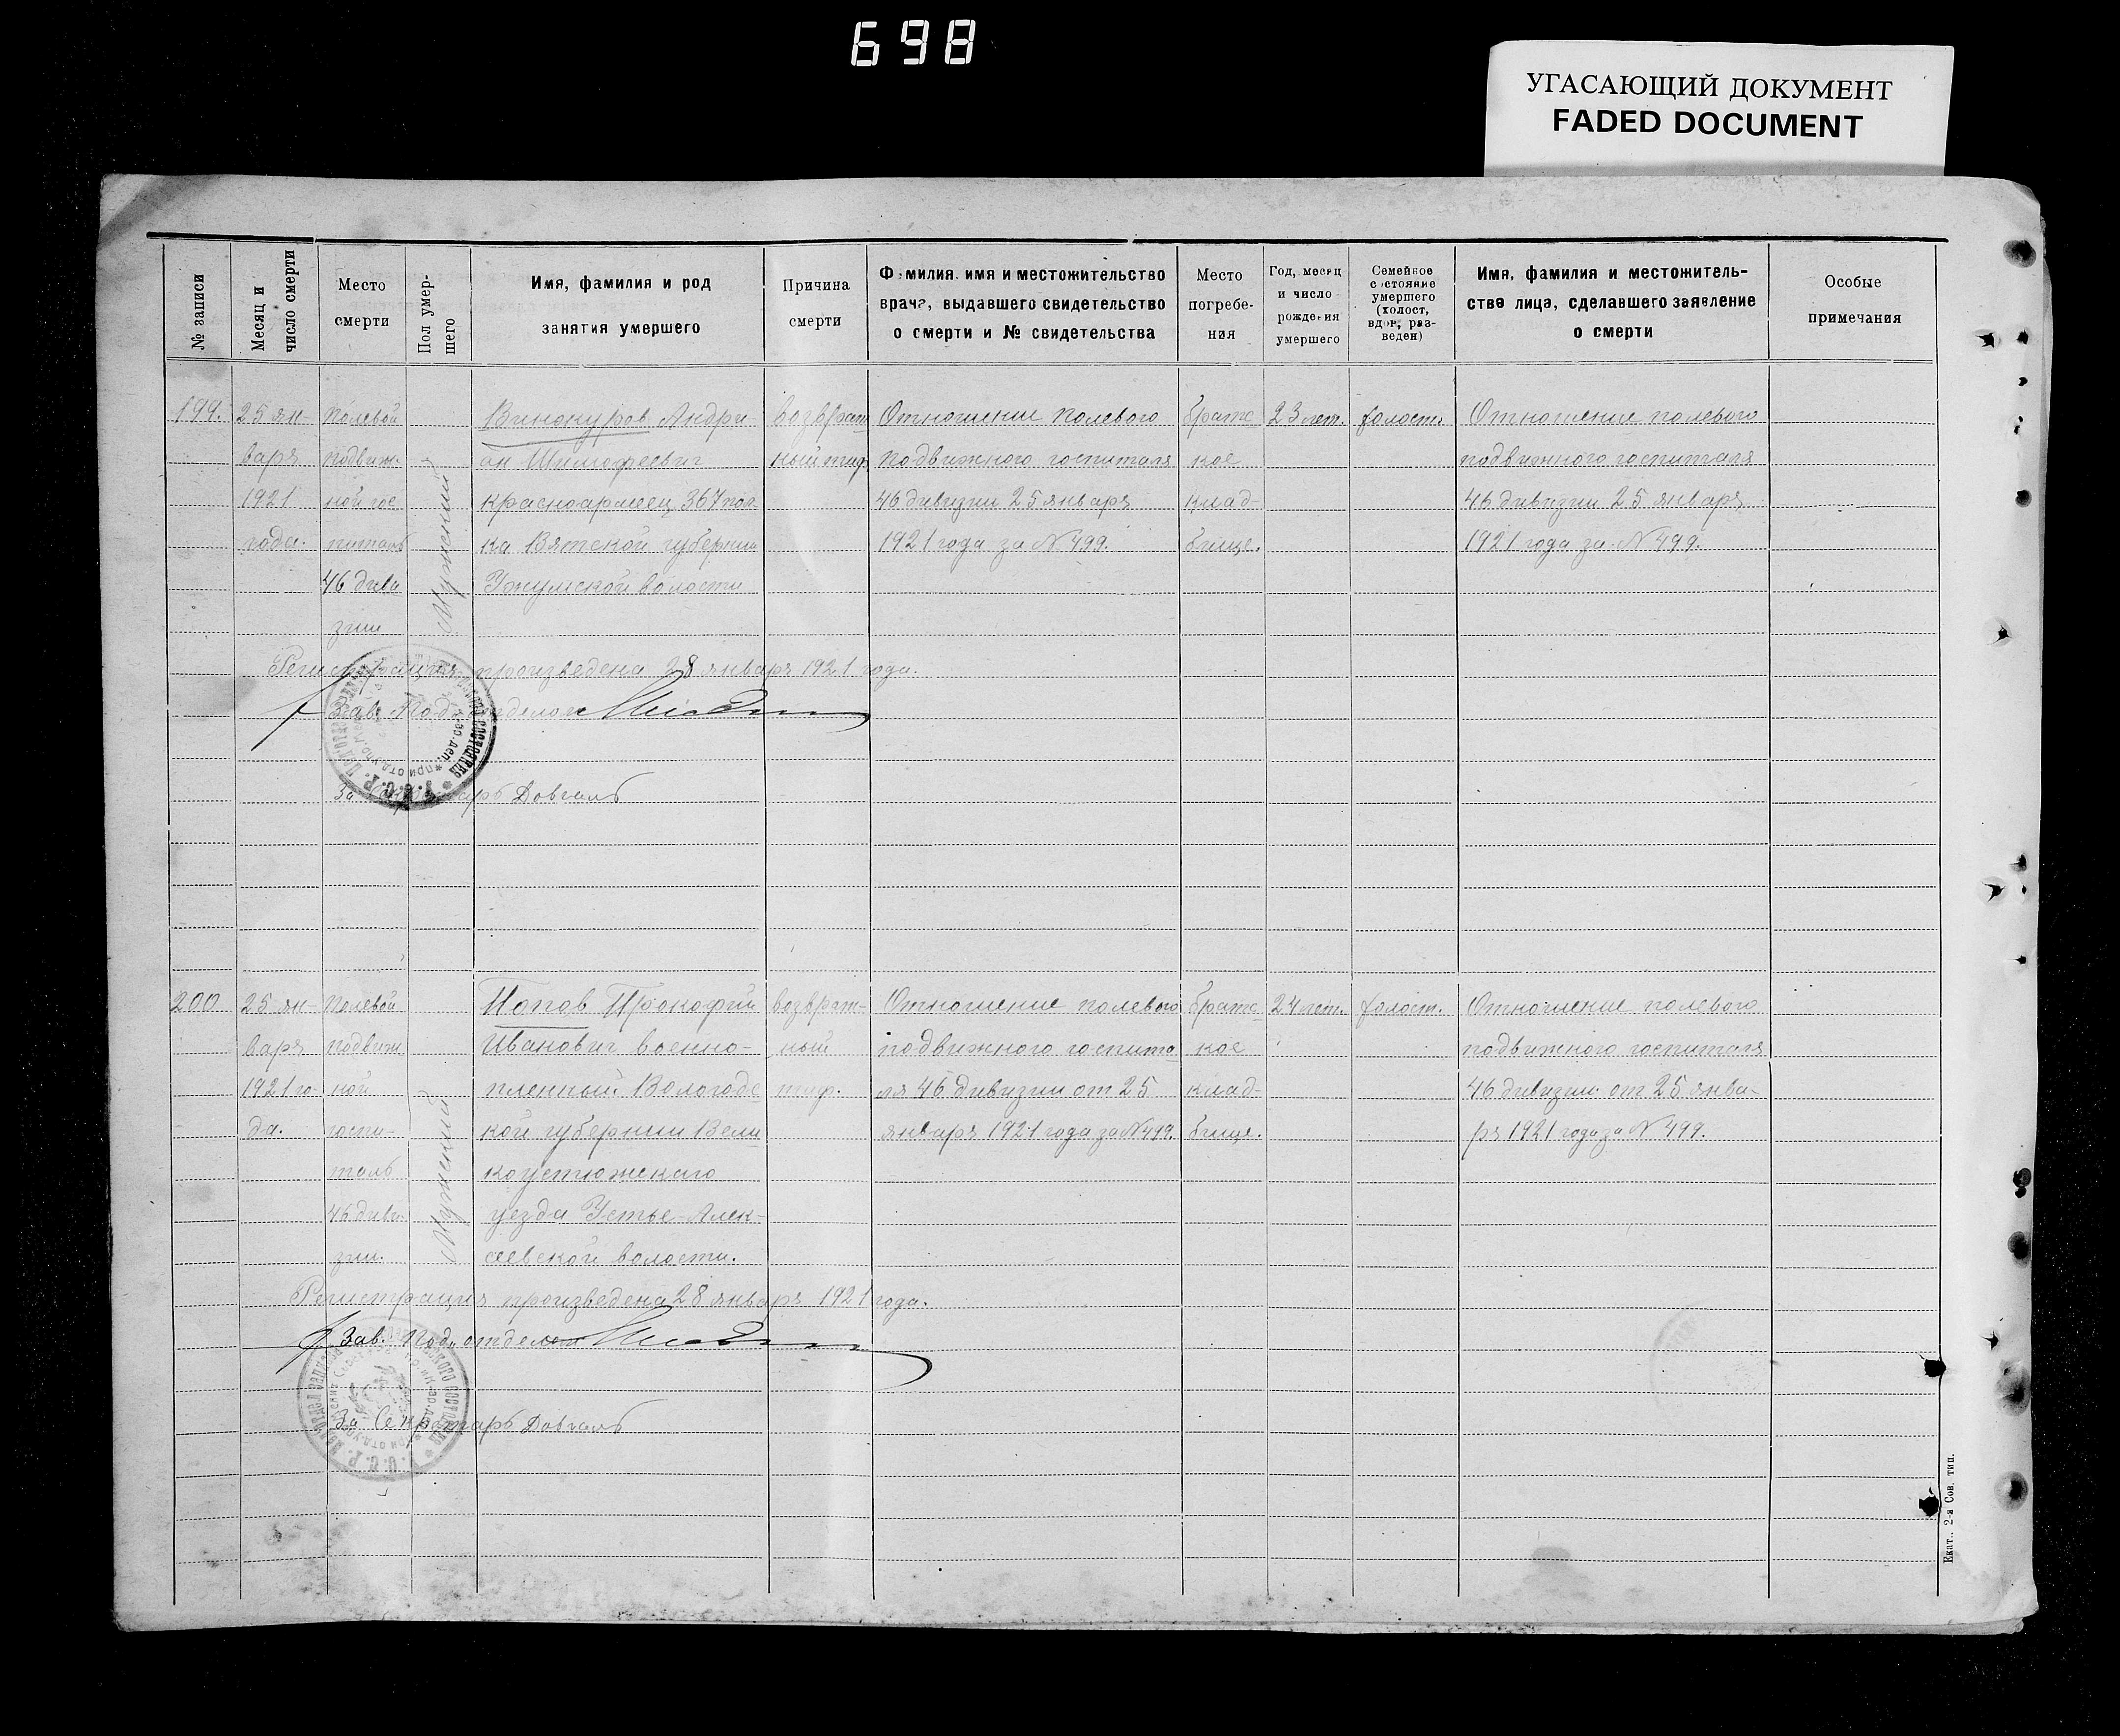 698
УГАСАЮЩИЙ ДОКУМЕНТ
FADED DOCUMENT
№ записи
Месяц и
число смерти
Место
смерти
Пол умер-
шего
Имя, фамилия и род
занятия умершего
Причина
смерти
Фамилия, имя и местожительство
врача, выдавшего свидетельство
о смерти и № свидетельства
Место
погребе-
ния
Год, месяц
и число
рождения
умершего
Семейное
состояние
умершего
(холост,
вдов, раз-
веден)
Имя, фамилия и местожитель-
ства лица, сделавшего заявление
о смерти
Особые
примечания
199.
25 ян-
варя
1921
года.
Полевой
подвиж-
ной гос
питаль
46 диви
зии
Мужеский
Винокуров Андри-
ан Тимофеевич
красноармеец 367 пол-
ка Вятской губернии
Уржумской волости
возврат
ный тиф
Отношение полевого
подвижного госпиталя
46 дивизии 25 января
1921 года за N 499.
братс
кое
клад-
бище.
23 лет.
холост.
Отношение полевого
подвижного госпиталя
46 дивизии 25 января
1921 года за N 499.
Регистрация произведена 28 января 1921 года.
Зав. Подотделом
За Секретарь Довгаль
200
25 ян-
варя
1921 го-
да.
Полевой
подвиж
ной
госпи-
таль
46 диви-
зии.
Мужеский
Попов Прокофий
Иванович военно-
пленный Вологодс
кой губернии Вели
коустюжскаго
уезда Устье-Алек-
сеевской волости.
возврат-
ный
тиф.
Отношение полевого
подвижного госпита
ля 46 дивизии от 25
января 1921 года за N 499.
братс
кое
клад-
бище.
24 лет.
холост.
Отношение полевого
подвижного госпиталя
46 дивизии от 25 янва-
ря 1921 года за N 499.
Регистрация произведена 28 января 1921 года.
Зав. Подотделом
За Секретарь Довгаль
Екат., 2-я Сов. тип.